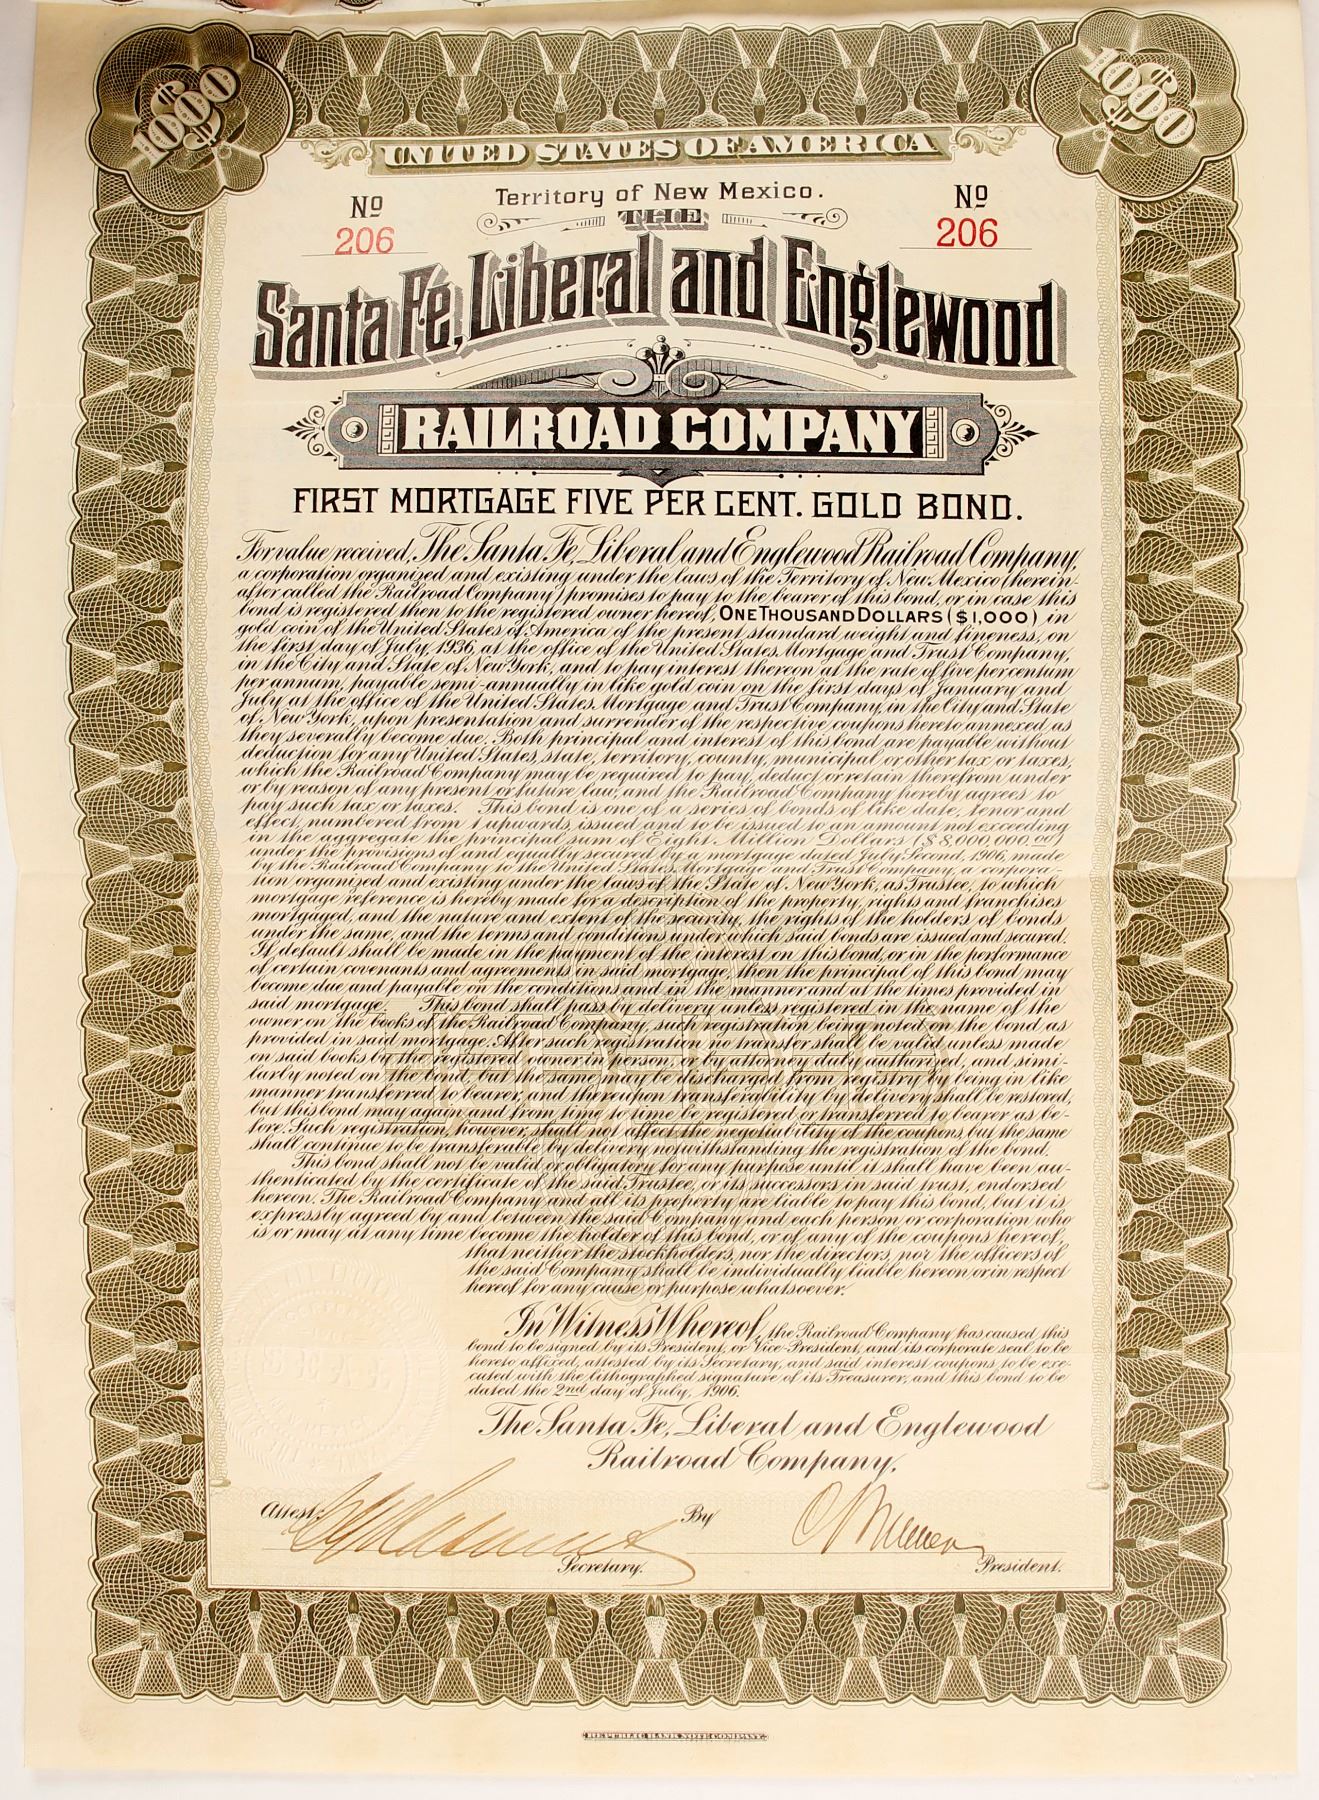 $1000
$1000
UNITED STATES OF AMERICA
Territory of New Mexico.
Nº
Nº
206
206
THE
Santa Fé, Liberal and Englewood
RAILROAD COMPANY
FIRST MORTGAGE FIVE PER CENT. GOLD BOND.
For value received, The Santa Fe, Liberal and Englewood Railroad Company,
a corporation organized and existing under the laws of the Territory of New Mexico (herein-
after called the Railroad Company) promises to pay to the bearer of this bond, or in case this
bond is registered then to the registered owner hereof, ONE THOUSAND DOLLARS ($1,000) in
gold coin of the United States of America of the present standard weight and fineness, on
the first day of July, 1936, at the office of the United States Mortgage and Trust Company,
in the City and State of New York, and to pay interest thereon at the rate of five per centum
per annum, payable semi-annually in like gold coin on the first days of January and
July at the office of the United States Mortgage and Trust Company, in the City and State
of New York, upon presentation and surrender of the respective coupons hereto annexed as
they severally become due. Both principal and interest of this bond are payable without
deduction for any United States, state, territory, county, municipal or other tax or taxes,
which the Railroad Company may be required to pay, deduct or retain therefrom under
or by reason of any present or future law, and the Railroad Company hereby agrees to
pay such tax or taxes. This bond is one of a series of bonds of like date, tenor and
effect, numbered from 1 upwards, issued and to be issued to an amount not exceeding
in the aggregate the principal sum of Eight Million Dollars ($8,000,000.00)
under the provisions of and equally secured by a mortgage dated July Second, 1906, made
by the Railroad Company to the United States Mortgage and Trust Company, a corpora-
tion organized and existing under the laws of the State of New York, as Trustee, to which
mortgage reference is hereby made for a description of the property, rights and franchises
mortgaged, and the nature and extent of the security, the rights of the holders of bonds
under the same, and the terms and conditions under which said bonds are issued and secured.
If default shall be made in the payment of the interest on this bond, or in the performance
of certain covenants and agreements in said mortgage, then the principal of this bond may
become due and payable on the conditions and in the manner and at the times provided in
said mortgage. This bond shall pass by delivery unless registered in the name of the
owner on the books of the Railroad Company, such registration being noted on the bond as
provided in said mortgage. After such registration no transfer shall be valid unless made
on said books by the registered owner in person, or by attorney duly authorized, and simi-
larly noted on the bond, but the same may be discharged from registry by being in like
manner transferred to bearer, and thereupon transferability by delivery shall be restored,
but this bond may again and from time to time be registered or transferred to bearer as be-
fore. Such registration, however, shall not affect the negotiability of the coupons, but the same
shall continue to be transferable by delivery notwithstanding the registration of the bond.
This bond shall not be valid or obligatory for any purpose until it shall have been au-
thenticated by the certificate of the said Trustee, or its successors in said trust, endorsed
hereon. The Railroad Company and all its property are liable to pay this bond, but it is
expressly agreed by and between the said Company and each person or corporation who
is or may at any time become the holder of this bond, or of any of the coupons hereof,
that neither the stockholders, nor the directors, nor the officers of
the said Company shall be individually liable hereon or in respect
hereof for any cause or purpose whatsoever.
In Witness Whereof, the Railroad Company has caused this
bond to be signed by its President, or Vice-President, and its corporate seal to be
hereto affixed, attested by its Secretary, and said interest coupons to be exe-
cuted with the lithographed signature of its Treasurer, and this bond to be
dated the 2nd day of July, 1906.
The Santa Fe, Liberal and Englewood
Railroad Company,
Attest:
By
Secretary.
President.
REPUBLIC BANK NOTE COMPANY.